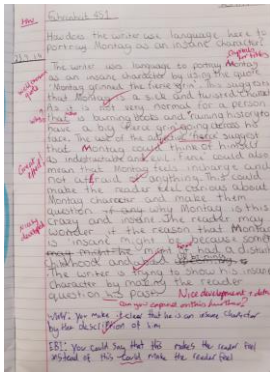 HW
Fahrenheit 451
How does the writer use language here to
portray Montag as an insane character.
The writer was language to portray Montag
as an insane character by using the quote
'Montag grinned the fierce grin'. This suggests
that Montag is a sick and twisted
As it is not very normal for a person
that is burning books and ruining history to
have a big fierce grin going across his
face. The use of the adjective fierce suggest
that Montag could think of himself
as indestructable and evil. Fierce could also
mean that Montag feels and
not afraid of anything. This could
make the reader feel curious about
Montag character and make them
question if any why Montag is this
crazy and insane. The reader may
wonder if the reason that Montag
is insane might be because som
may might have had a
childhood and
The writer is trying to show his insane
character by making the reader
question his past.
Nice development
Can you expand on this idea there?
WWW: you make it clear that he is an insane character
by the description of him
EBI: you could say that this makes the reader feel
instead of this could make the reader feel